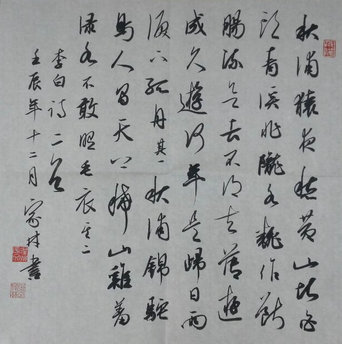 秋浦猿夜愁黄山堪白
头青溪非隴水翻作断
腸流欲去不得去薄遊
成久遊何年是歸日雨
淚下孤舟其一秋浦錦駝
鳥人間天上稀山雞羞
渌水不敢照毛衣其二
李白诗二首
壬辰年十二月 書